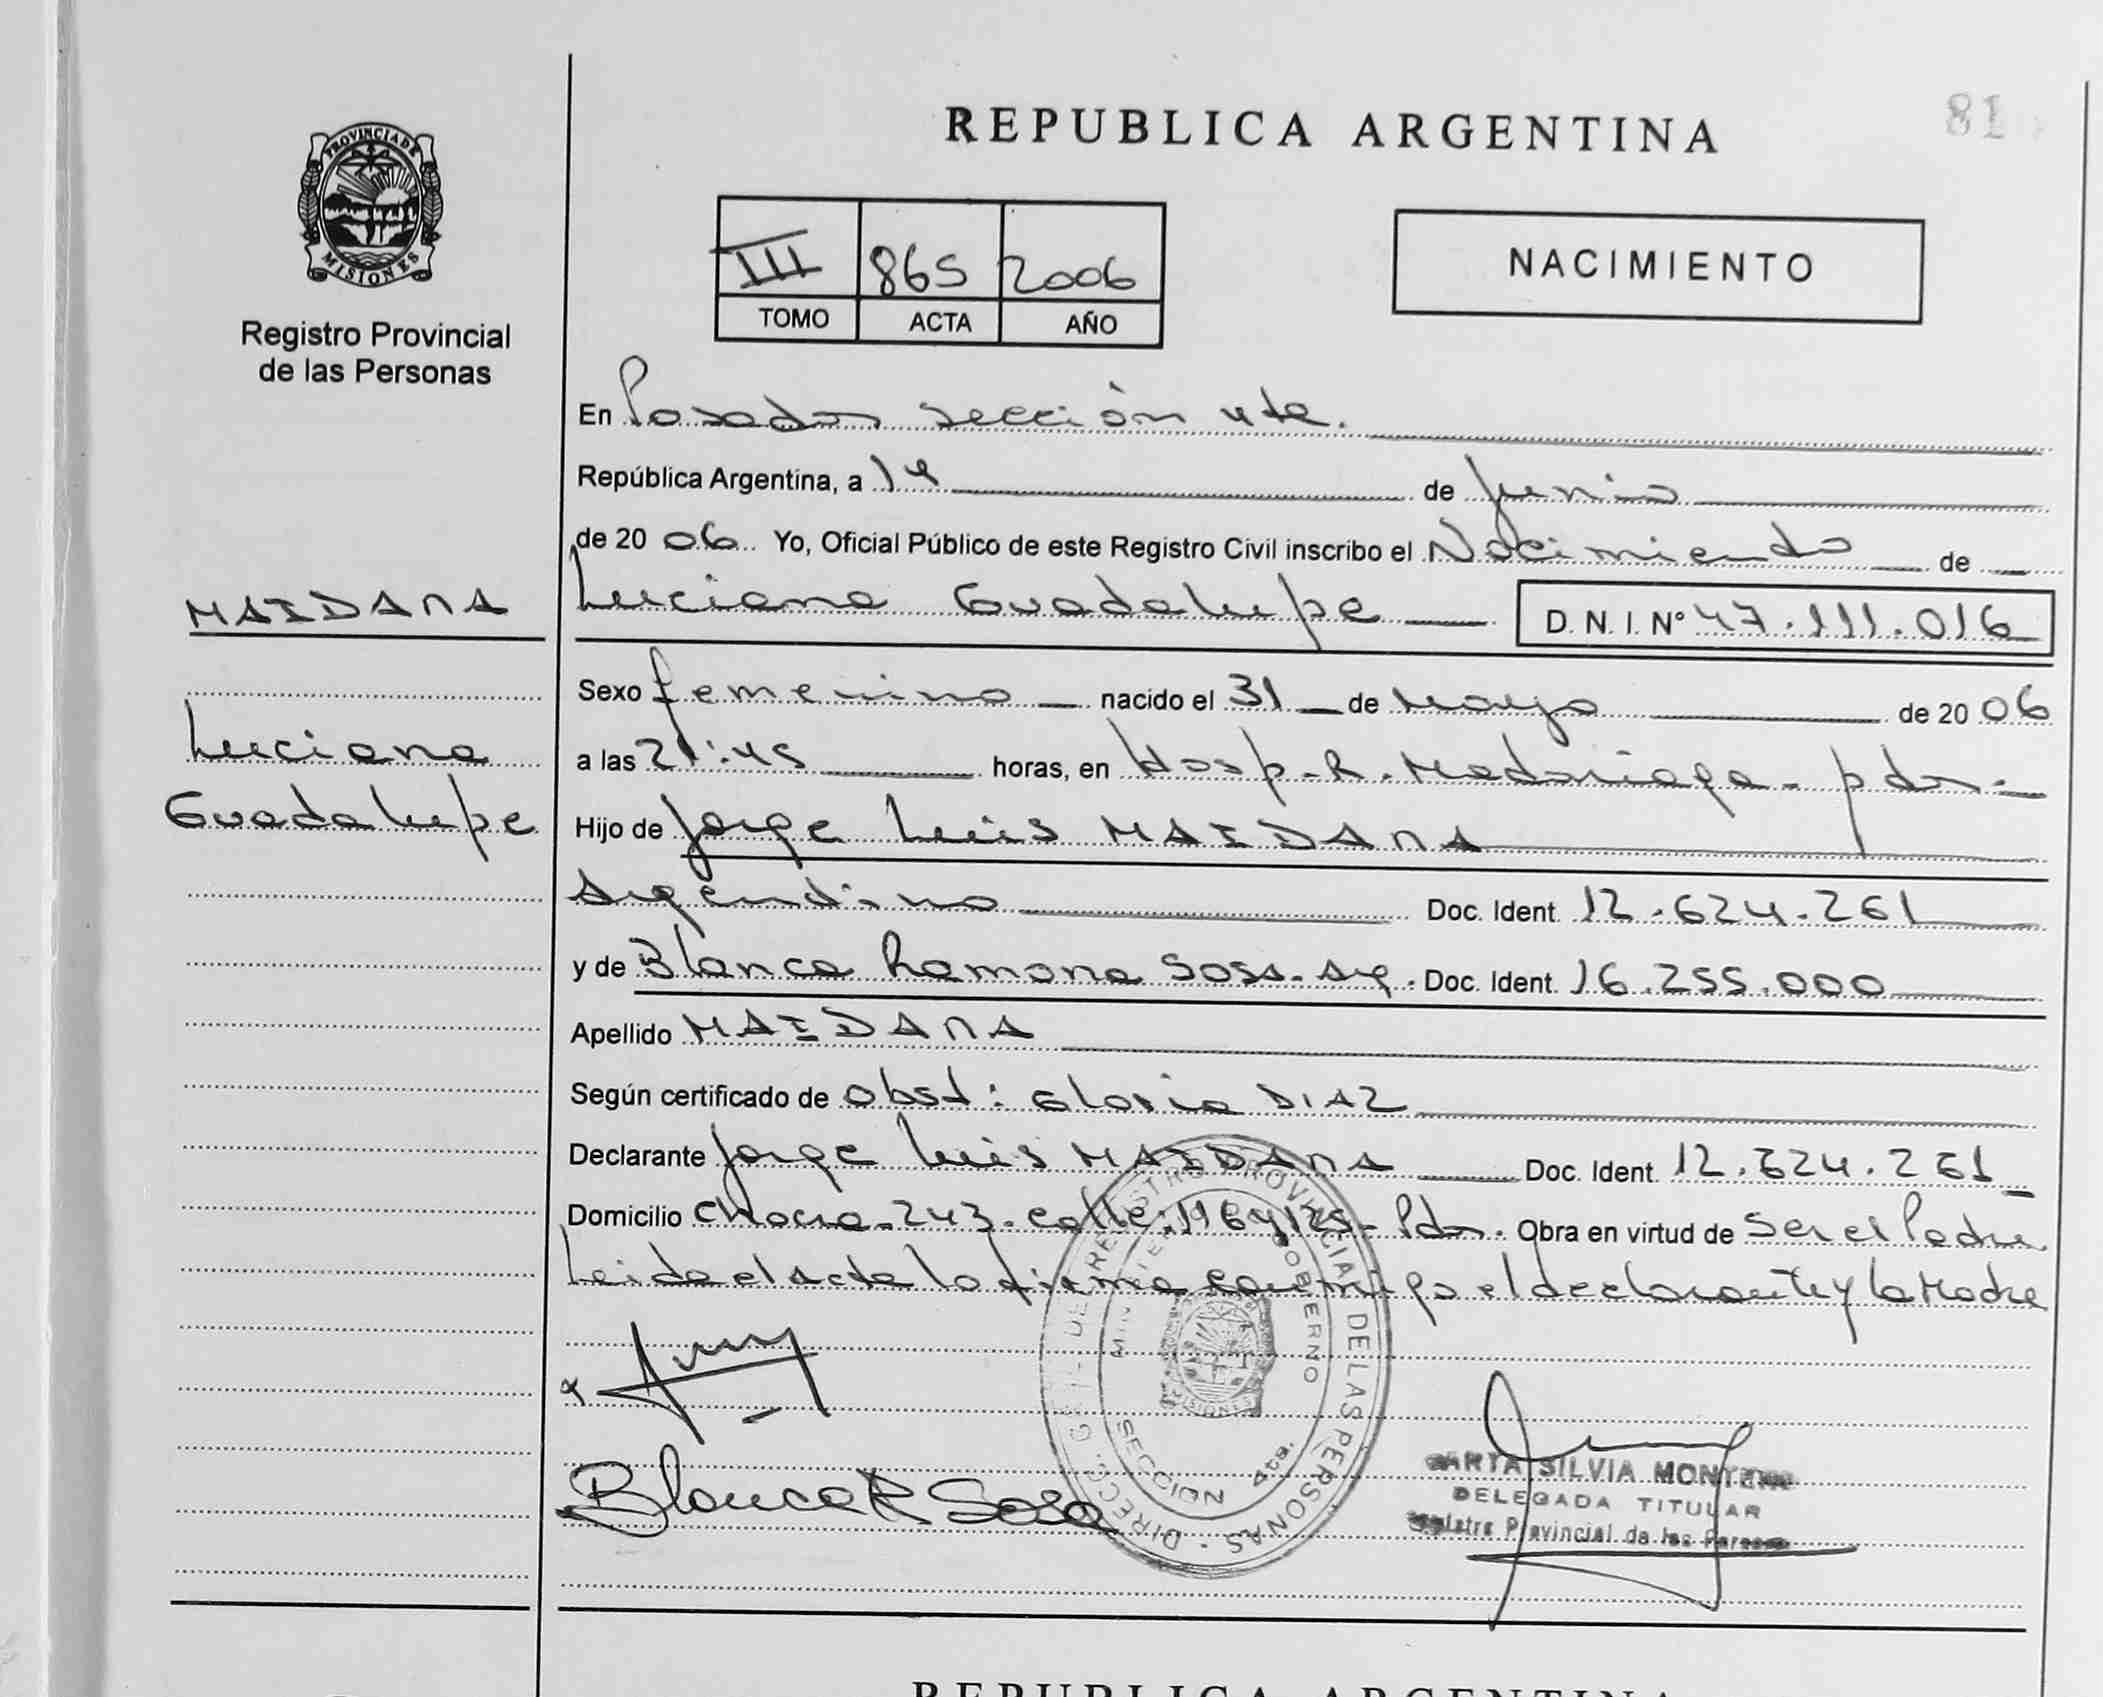 REPUBLICA ARGENTINA
81
PROVINCIA DE
MISIONES
Registro Provincial
de las Personas
III 865 2006
TOMO ACTA AÑO
NACIMIENTO
En Posadas sección 4ta.
República Argentina, a 14 de Junio
de 2006 Yo, Oficial Público de este Registro Civil inscribo el Nacimiento de
MAIDANA
Luciana Guadalupe D. N. I. Nº 47.111.016
Sexo femenino nacido el 31 de Mayo de 2006
Luciana
Guadalupe
a las 21:45 horas, en Hosp. R. Madariaga - pdas -
Hijo de Jorge Luis MAIDANA
Argentino Doc. Ident. 12.624.261
y de Blanca Ramona Sosa - Arg. Doc. Ident. 16.255.000
Apellido MAIDANA
Según certificado de Obst: Gloria DIAZ
Declarante Jorge Luis MAIDANA Doc. Ident. 12.624.261
Domicilio Chacra - 243 - calle: Pdas. Obra en virtud de Ser el Padre
Leida el acta la firma conmigo el declarante y la Madre
DIRECC. GRAL. DEL REGISTRO PROVINCIAL DE LAS PERSONAS
GOBIERNO
MISIONES
SECCION 4ta.
Blanca R Sosa
SILVIA
DELEGADA TITULAR
Registro Provincial de las Personas
REPUBLICA ARGENTINA